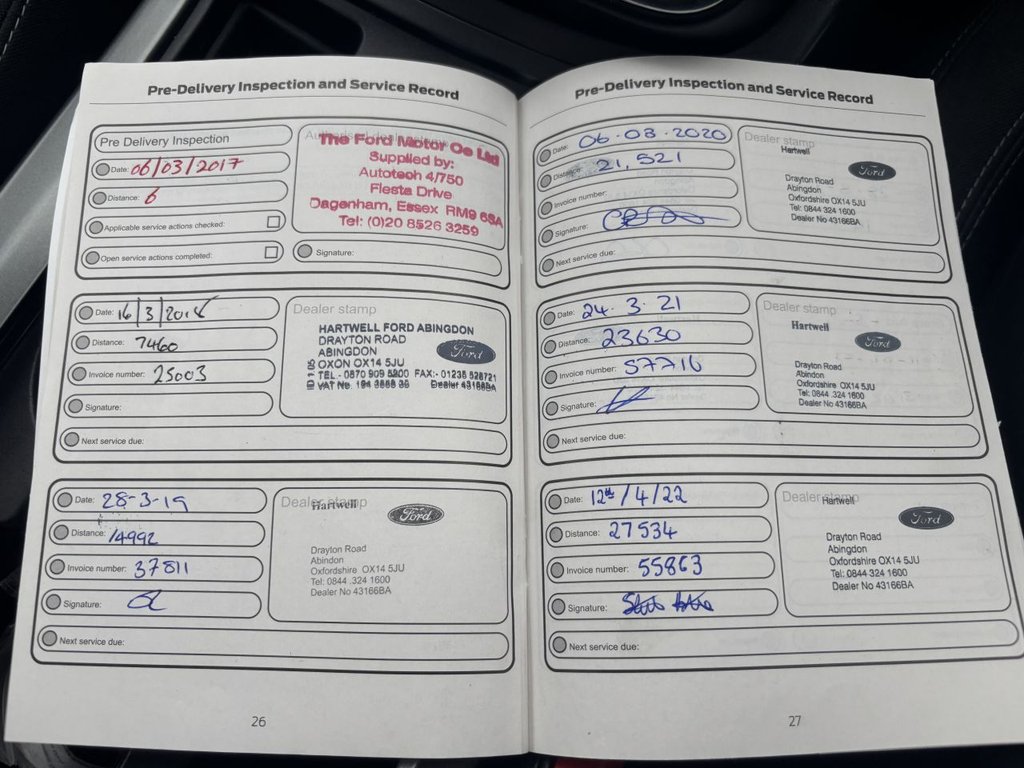 Pre-Delivery Inspection and Service Record
Pre Delivery Inspection
Date: 06/03/2017
Distance: 6
Applicable service actions checked:
Open service actions completed:
The Ford Motor Co Ltd
Supplied by:
Autotech 4/750
Fiesta Drive
Dagenham, Essex RM9 6SA
Tel: (0)20 8526 3259
Signature:
Date: 16/3/2018
Distance: 7460
Invoice number: 25003
Signature:
Next service due:
Dealer stamp
HARTWELL FORD ABINGDON
DRAYTON ROAD
ABINGDON
OXON OX14 5JU
TEL - 0870 909 5200 FAX:- 01235 528721
VAT No. Dealer 43166BA
Ford
Date: 28-3-19
Distance: 14992
Invoice number: 37811
Signature:
Next service due:
Dealer stamp
Hartwell
Ford
Drayton Road
Abindon
Oxfordshire OX14 5JU
Tel: 0844 324 1600
Dealer No 43166BA
26
Pre-Delivery Inspection and Service Record
Date: 06.03.2020
Distance: 21,521
Invoice number:
Signature:
Next service due:
Dealer stamp
Hartwell
Ford
Drayton Road
Abingdon
Oxfordshire OX14 5JU
Tel: 0844 324 1600
Dealer No 43166BA
Date: 24.3.21
Distance: 23630
Invoice number: 57716
Signature:
Next service due:
Dealer stamp
Hartwell
Ford
Drayton Road
Abindon
Oxfordshire OX14 5JU
Tel: 0844 .324 1600
Dealer No 43166BA
Date: 12th/4/22
Distance: 27534
Invoice number: 55863
Signature:
Next service due:
Dealer stamp
Hartwell
Ford
Drayton Road
Abingdon
Oxfordshire OX14 5JU
Tel: 0844 324 1600
Dealer No 43166BA
27